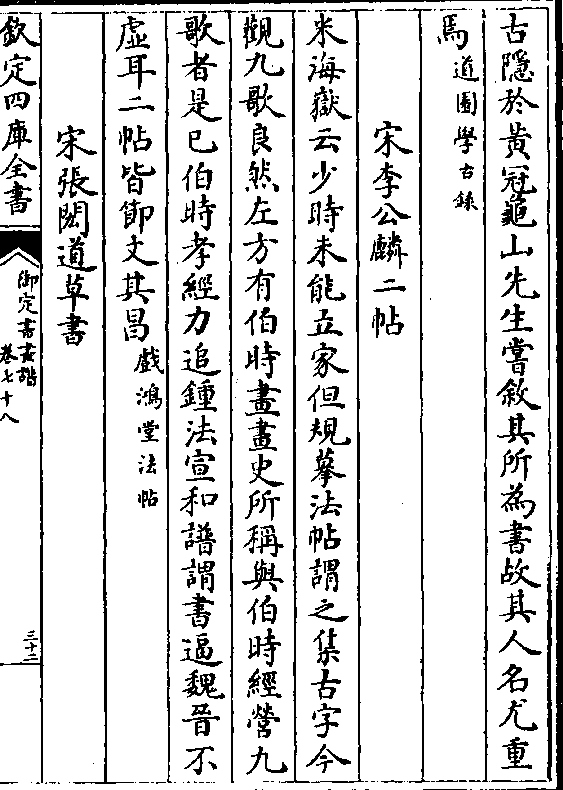 古隠於黄冠龜山先生嘗敘其所為書故其人名尤重
焉道園學古錄
宋李公麟二帖
米海嶽云少時未能立家但規摹法帖謂之集古字今
觀九歌良然左方有伯時畫畫史所稱與伯時經營九
歌者是已伯時孝經力追鍾法宣和譜謂書逼魏晉不
虛耳二帖皆節文其昌戲鴻堂法帖
宋張閎道草書
欽定四庫全書
御定書畫譜
卷七十八
三十二